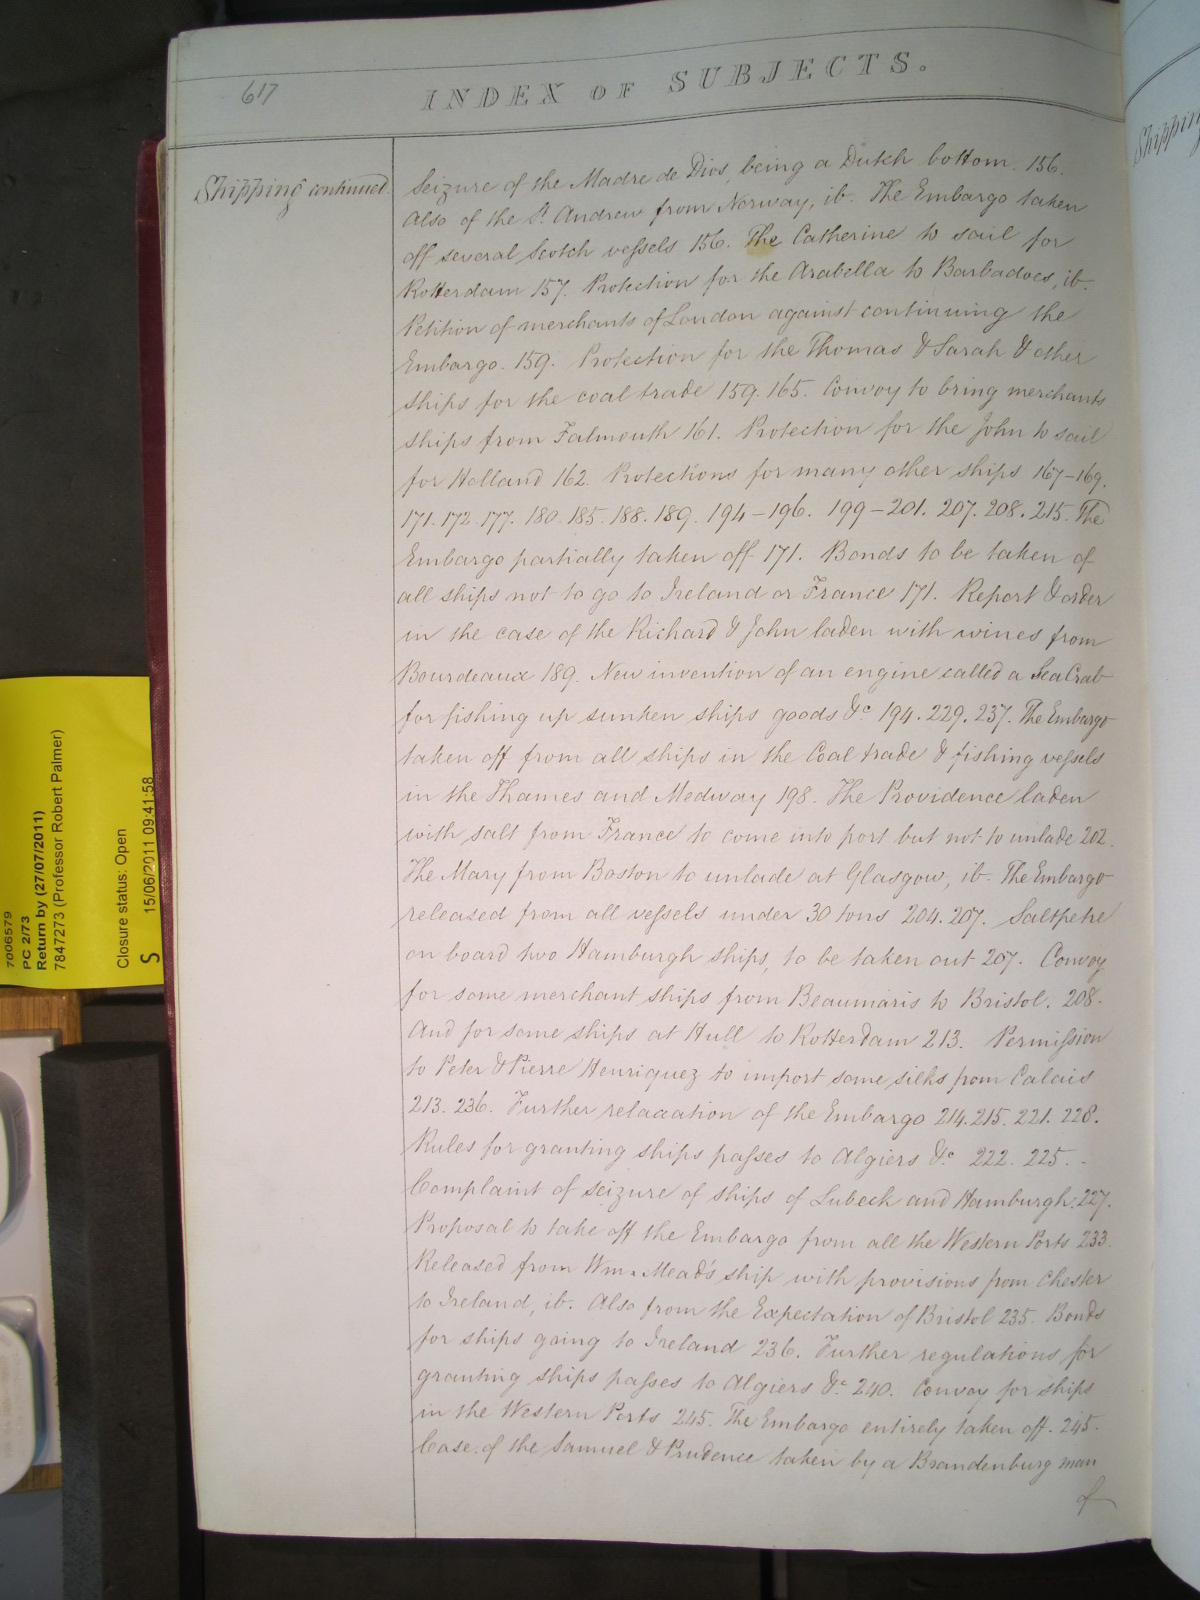 617
INDEX OF SUBJECTS.
Shipping continued.
Seizure of the Madre de Dios, being a Dutch bottom. 156.
Also of the St. Andrew from Norway, ib. The Embargo taken
off several Scotch veſsels 156. The Catherine to sail for
Rotterdam 157. Protection for the Arabella to Barbadoes, ib.
Petition of merchants of London against continuing the
Embargo. 159. Protection for the Thomas & Sarah & other
ships for the coal trade 159. 165. Convoy to bring merchants
ships from Falmouth 161. Protection for the John to sail
for Holland 162. Protections for many other ships 167-169.
171. 172. 177. 180. 185. 188. 189. 194-196. 199-201. 207. 208. 215. The
Embargo partially taken off 171. Bonds to be taken of
all ships not to go to Ireland or France 171. Report & order
in the case of the Richard & John laden with wines from
Bourdeaux 189. New invention of an engine called a Sea Crab
for fishing up sunken ships goods &c 194. 229. 237. The Embargo
taken off from all ships in the Coal trade & fishing veſsels
in the Thames and Medway 198. The Providence laden
with salt from France to come into port but not to unlade 202.
The Mary from Boston to unlade at Glasgow, ib. The Embargo
released from all veſsels under 30 tons 204. 207. Saltpetre
on board two Hamburgh ships, to be taken out 207. Convoy
for some merchant ships from Beaumaris to Bristol. 208.
And for some ships at Hull to Rotterdam 213. Permiſsion
to Peter & Pierre Henriquez to import some silks from Calais
213. 236. Further relaxation of the Embargo 214. 215. 221. 228.
Rules for granting ships paſses to Algiers &c. 222. 225.
Complaint of seizure of ships of Lubeck and Hamburgh. 227.
Proposal to take off the Embargo from all the Western Ports 233.
Released from Wm. Mead's ship with provisions from Chester
to Ireland, ib. Also from the Expectation of Bristol 235. Bonds
for ships going to Ireland 236. Further regulations for
granting ships paſses to Algiers &c. 240. Convoy for ships
in the Western Ports 245. The Embargo entirely taken off. 245.
Case of the Samuel & Prudence taken by a Brandenburg man
of
Shipping
7006579
PC 2/73
Return by (27/07/2011)
7847273 (Professor Robert Palmer)
Closure status: Open
S 15/06/2011 09:41:58